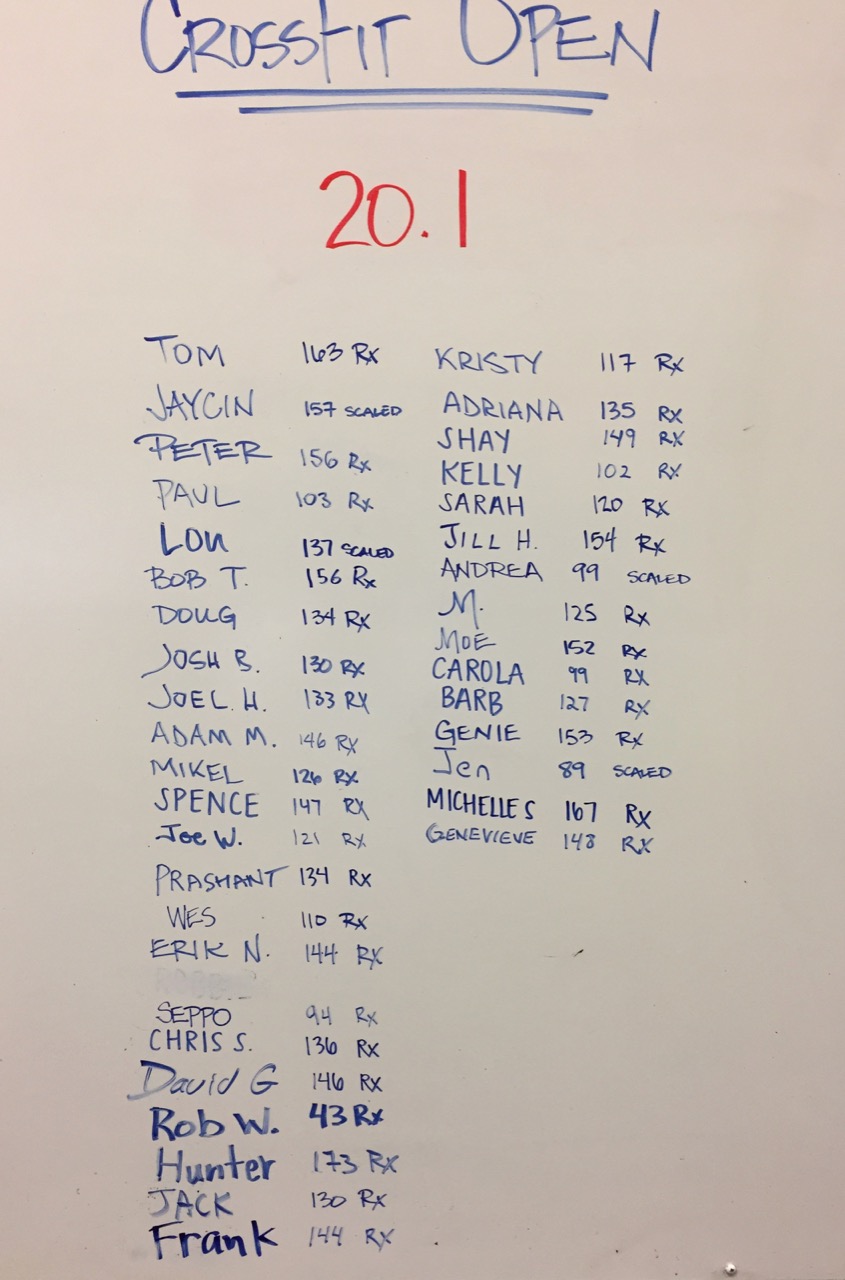 CROSSFIT OPEN
20.1
TOM 163 Rx
JAYCIN 157 SCALED
PETER 156 Rx
PAUL 103 Rx
Lou 137 SCALED
BOB T. 156 Rx
DOUG 134 Rx
JOSH B. 130 Rx
JOEL H. 133 Rx
ADAM M. 146 Rx
MIKEL 126 Rx
SPENCE 147 Rx
Joe W. 121 Rx
PRASHANT 134 Rx
WES 110 Rx
ERIK N. 144 Rx
SEPPO 94 Rx
CHRIS S. 136 Rx
David G 146 Rx
Rob W. 43 Rx
Hunter 173 Rx
JACK 130 Rx
Frank 144 Rx
KRISTY 117 Rx
ADRIANA 135 Rx
SHAY 149 Rx
KELLY 102 Rx
SARAH 120 Rx
JILL H. 154 Rx
ANDREA 99 SCALED
M. 125 Rx
MOE 152 Rx
CAROLA 99 Rx
BARB 127 Rx
GENIE 153 Rx
Jen 89 SCALED
MICHELLE S 167 Rx
GENEVIEVE 148 Rx